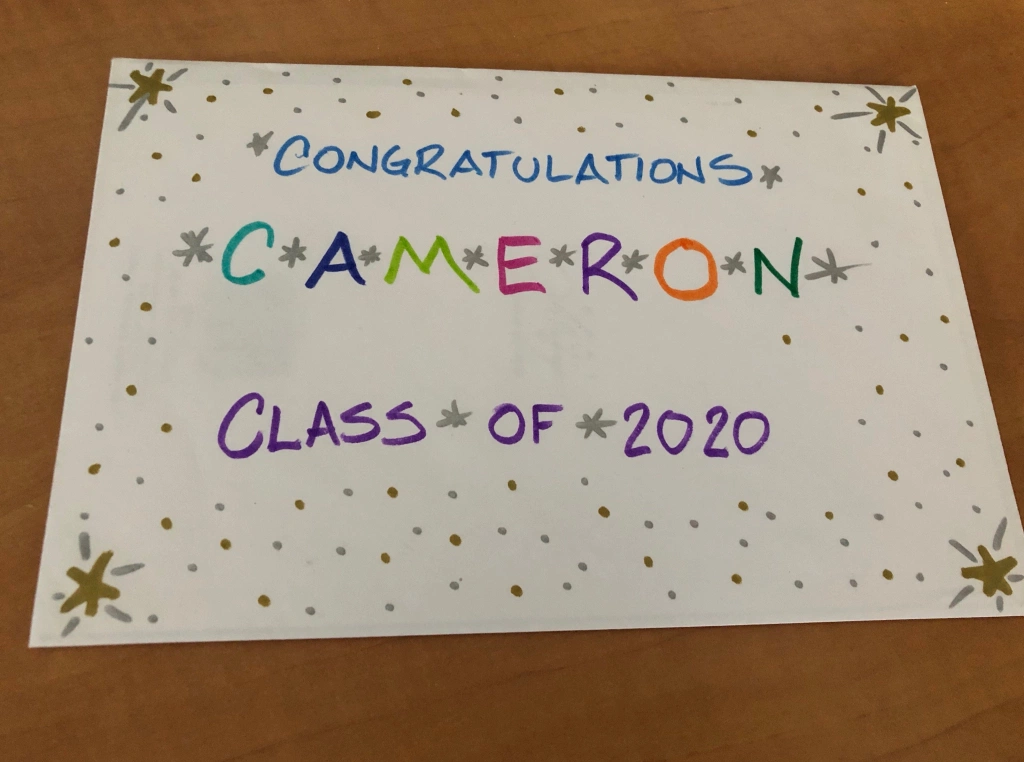 *CONGRATULATIONS*
*C*A*M*E*R*O*N*
CLASS * OF * 2020